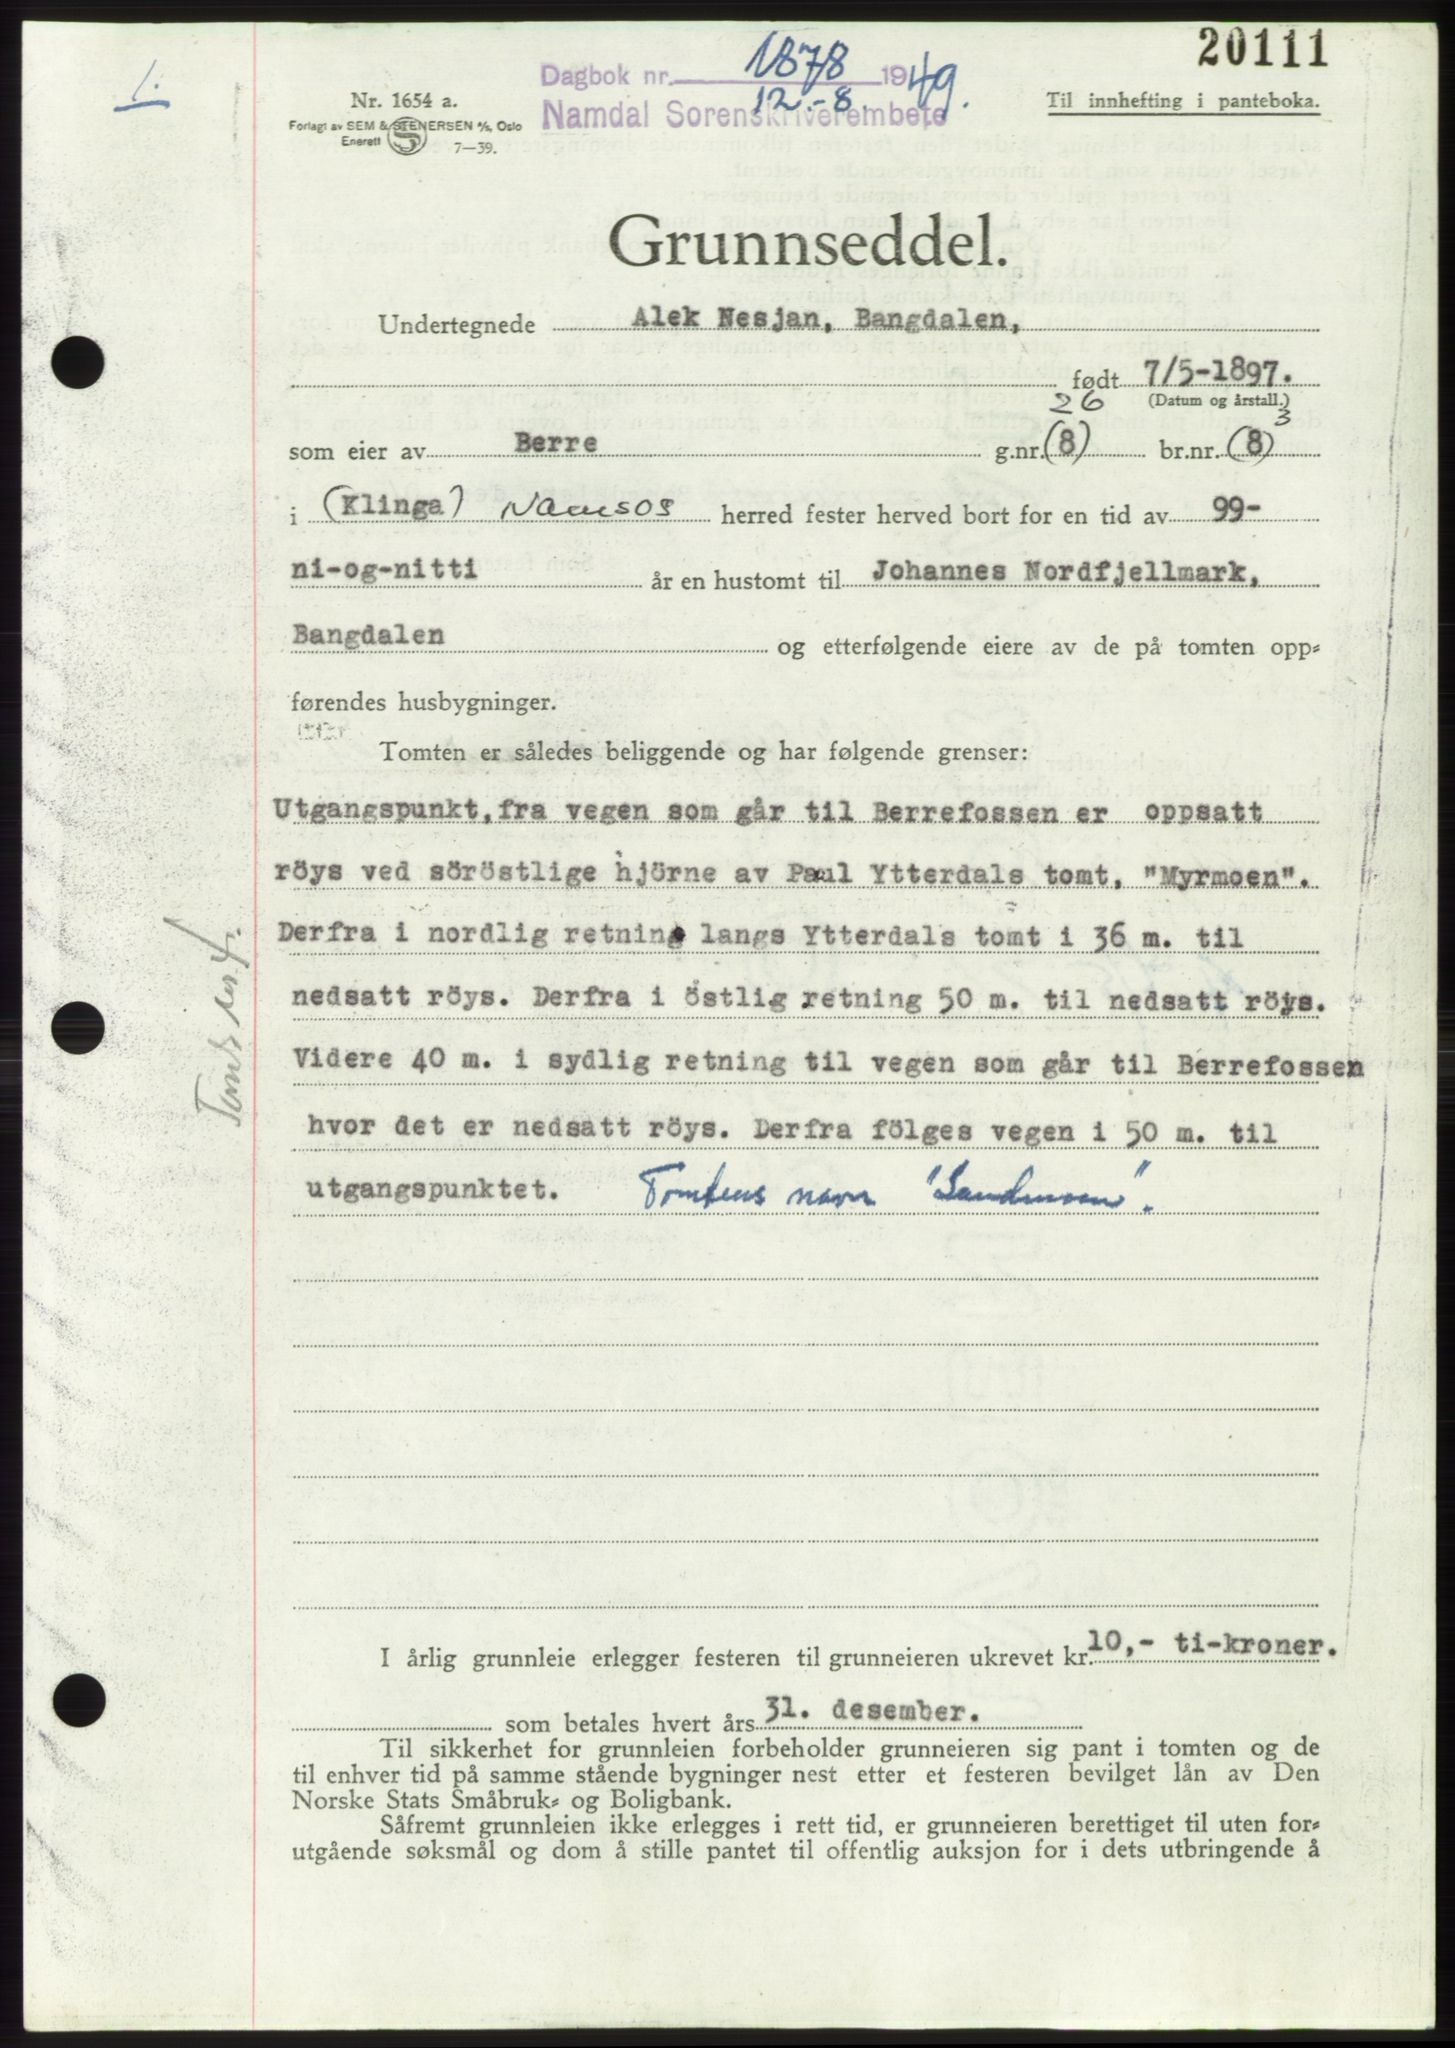 20111
1.
Dagbok nr. 1878 1949.
12.-8.
Namdal Sorenskriverembete
Nr. 1654 a.
Forlagt av SEM & STENERSEN A/S, Oslo
Enerett S 7—39.
Til innhefting i panteboka.
Grunnseddel.
Undertegnede Alek Nesjan, Bangdalen,
født 7/5-1897.
(Datum og årstall.)
26 3
som eier av Berre g.nr. (8) br.nr. (8)
i (Klinga) Namsos herred fester herved bort for en tid av 99-
ni-og-nitti år en hustomt til Johannes Nordfjellmark,
Bangdalen og etterfølgende eiere av de på tomten opp-
førendes husbygninger.
Tomten er således beliggende og har følgende grenser:
Utgangspunkt, fra vegen som går til Berrefossen er oppsatt
röys ved söröstlige hjörne av Paul Ytterdals tomt, "Myrmoen".
Derfra i nordlig retning langs Ytterdals tomt i 36 m. til
nedsatt röys. Derfra i östlig retning 50 m. til nedsatt röys.
Videre 40 m. i sydlig retning til vegen som går til Berrefossen
hvor det er nedsatt röys. Derfra fölges vegen i 50 m. til
utgangspunktet. Tomtens navn "Sandmoen".
I årlig grunnleie erlegger festeren til grunneieren ukrevet kr. 10,- ti-kroner.
som betales hvert års 31. desember.
Til sikkerhet for grunnleien forbeholder grunneieren sig pant i tomten og de
til enhver tid på samme stående bygninger nest etter et festeren bevilget lån av Den
Norske Stats Småbruk- og Boligbank.
Såfremt grunnleien ikke erlegges i rett tid, er grunneieren berettiget til uten for-
utgående søksmål og dom å stille pantet til offentlig auksjon for i dets utbringende å